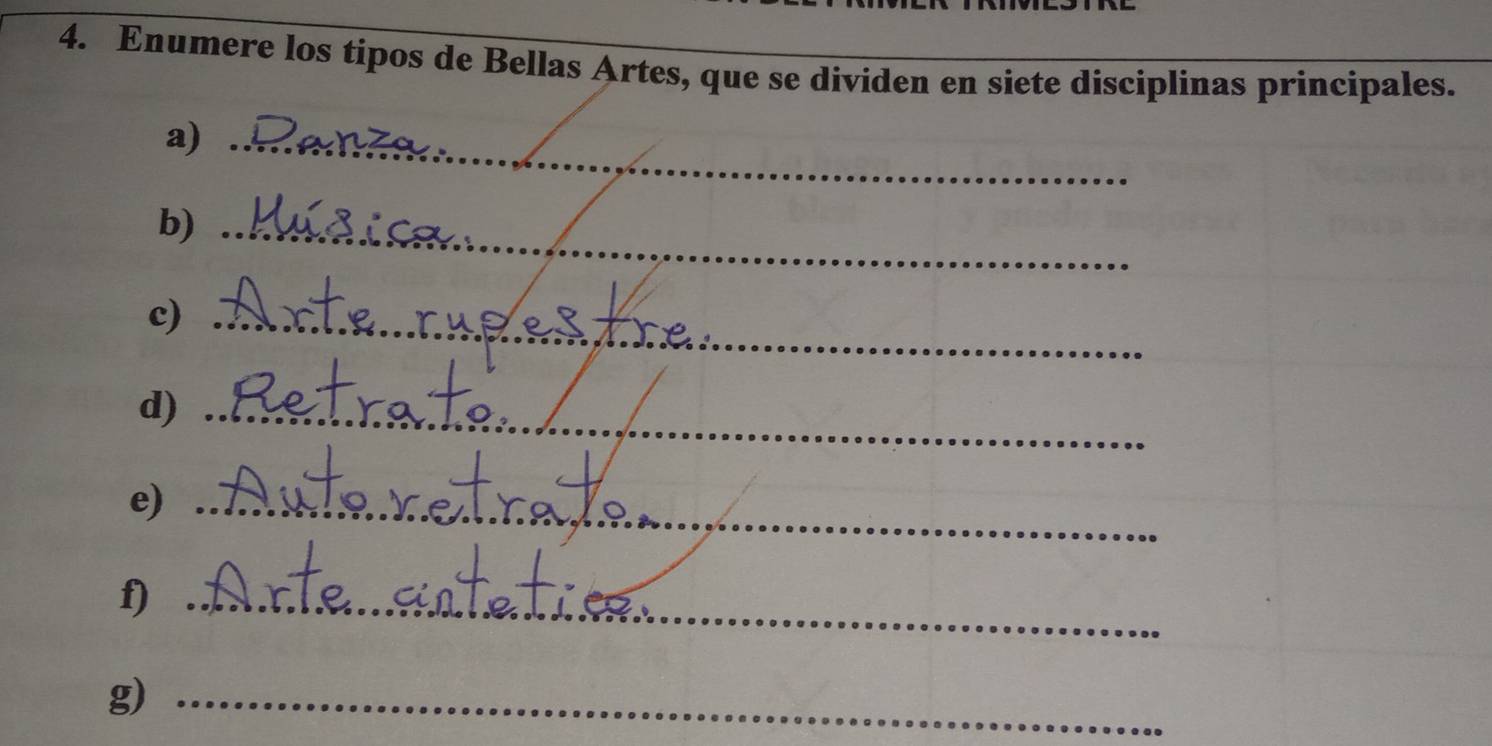 4. Enumere los tipos de Bellas Artes, que se dividen en siete disciplinas principales.
a) Danza.
b) Música.
c) Arte rupestre.
d) Retrato.
e) Autoretrato.
f) Arte cintetico.
g)